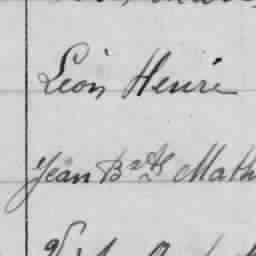 Léon Henri
Jean Bte Math